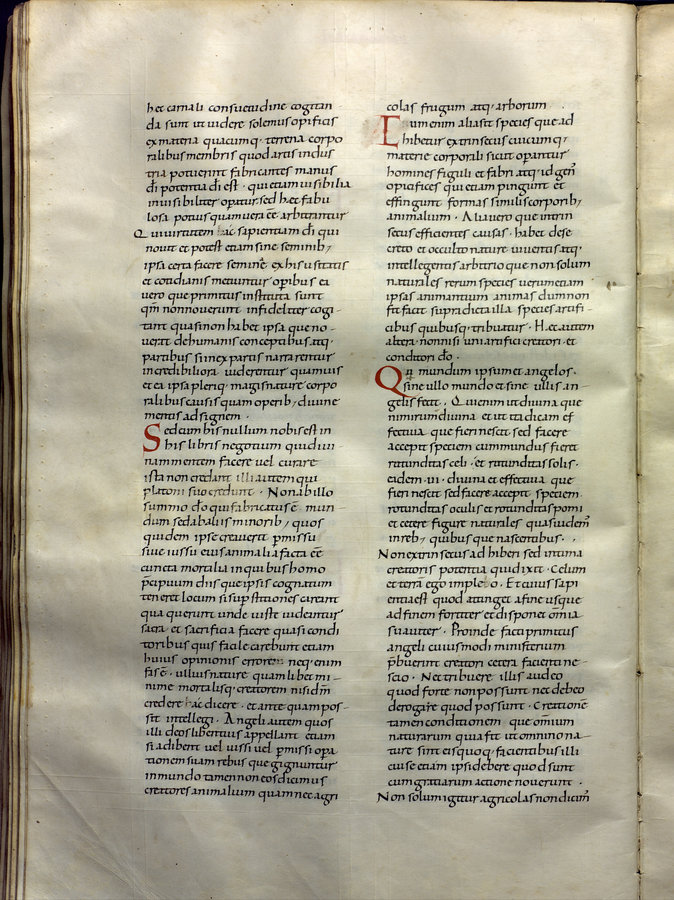 hec carnali consuetudine cogitan
da sunt ut uidere solemus opificis
ex materia quacumq; terrena corpo
ralibus membris quod artis indus
tria potuerint fabricantes manus
di potentia di est · qui etiam uisibilia
inuisibiliter operatur sed hec fabu
losa potius quam uera ee arbitrantur
Qui uirtutem hac sapientiam di qui
nouit et potest etiam sine seminib;
ipsa certa facere semine ex his usitatis
et cotidianis metiuntur operibus ea
uero que primitus instituta sunt
qm non nouerunt infideliter cogi
tant quasi non habet ipsa que no
uerat de humanis conceptibus atq;
partibus si inexpartis narrarentur
incredibiliora uiderentur quamuis
et ea ipsa pleriq; magis nature corpo
ralibus causis quam operib; diuine
mentis adsignem .
Sed cum his nullum nobis est in
his libris negotium qui diui
nam mentem facere uel curare
ista non credant illi autem qui
platoni suo credunt · Non ab illo
summo do qui fabricatus e mun
dum sed ab aliis minorib; quos
quidem ipse creauerit pmissu
siue iussu eius animalia facta ee
cuncta mortalia in quibus homo
pcipuum diisque ipsis cognatum
teneret locum si superstitiones careant
qua querunt unde uiste uideantur
sacra et sacrificia facere quasi condi
toribus quis facile carebunt etiam
huius opinionis errorem neq; enim
fas e · ullius nature quamlibet mi
nime mortalisq; creatorem nisi dm
credere hac dicere · et ante quam pos
sit intellegi · Angeli autem quos
illi deos libentius appellant etiam
si adibent uel uissi uel pmissi opa
tionem suam rebus que gignuntur
in mundo tamen non eos dicimus
creatores animalium quam nec agri
colas frugum atq; arborum
Cum enim alia sit species que ad
hibetur extrinsecus cuicumq;
materie corporali sicut operantur
homines figuli et fabri atq; id gen
opiafices qui etiam pingunt et
effingunt formas similis corporib;
animalium · Alia uero que intrin
secus efficientes causas · habet de se
creto et occulto nature uiuentis atq;
intellegentis arbitrio que non solum
naturales rerum species uerum etiam
ipsas animantium animas dum non
fit facit supradicta illa species artifi
cibus quibusq; tribuatur · Hec autem
altera non nisi uni artifici creatori et
conditori do ·
Qui mundum ipsum et angelos ·
sine ullo mundo et sine ullis an
gelis fecit · Qui enim ut diuina que
nimirum diuina et ut ita dicam ef
fectiua que fieri nescit sed facere
accepit speciem cum mundus fieret
rotunditas celi · et rotunditas solis ·
eadem ui · diuina et effectiua que
fieri nescit sed facere accepit speciem
rotunditas oculis et rotunditas pomi
et cetere figure naturales quas uidem
in reb; quibusque nascentibus ·
Non extrinsecus adhiberi sed intima
creatoris potentia qui dixit · Celum
et terra ego impleo · Et cuius sapi
entia est quod attinget a fine usque
ad finem fortiter et disponet omia
suauiter · Proinde facti primitus
angeli cuiusmodi ministerium
pbuerint creatori cetera facienti ne
scio · Nec tribuere illis audeo
quod forte non possunt nec debeo
derogare quod possunt · Creatione
tamen conditionem que omium
naturarum qua fit ut omnino na
ture sint eis quoq; facientibus illi
cui se etiam ipsi debere quod sunt
cum gratiarum actione nouerunt ·
Non solum igitur agricolas non dicim